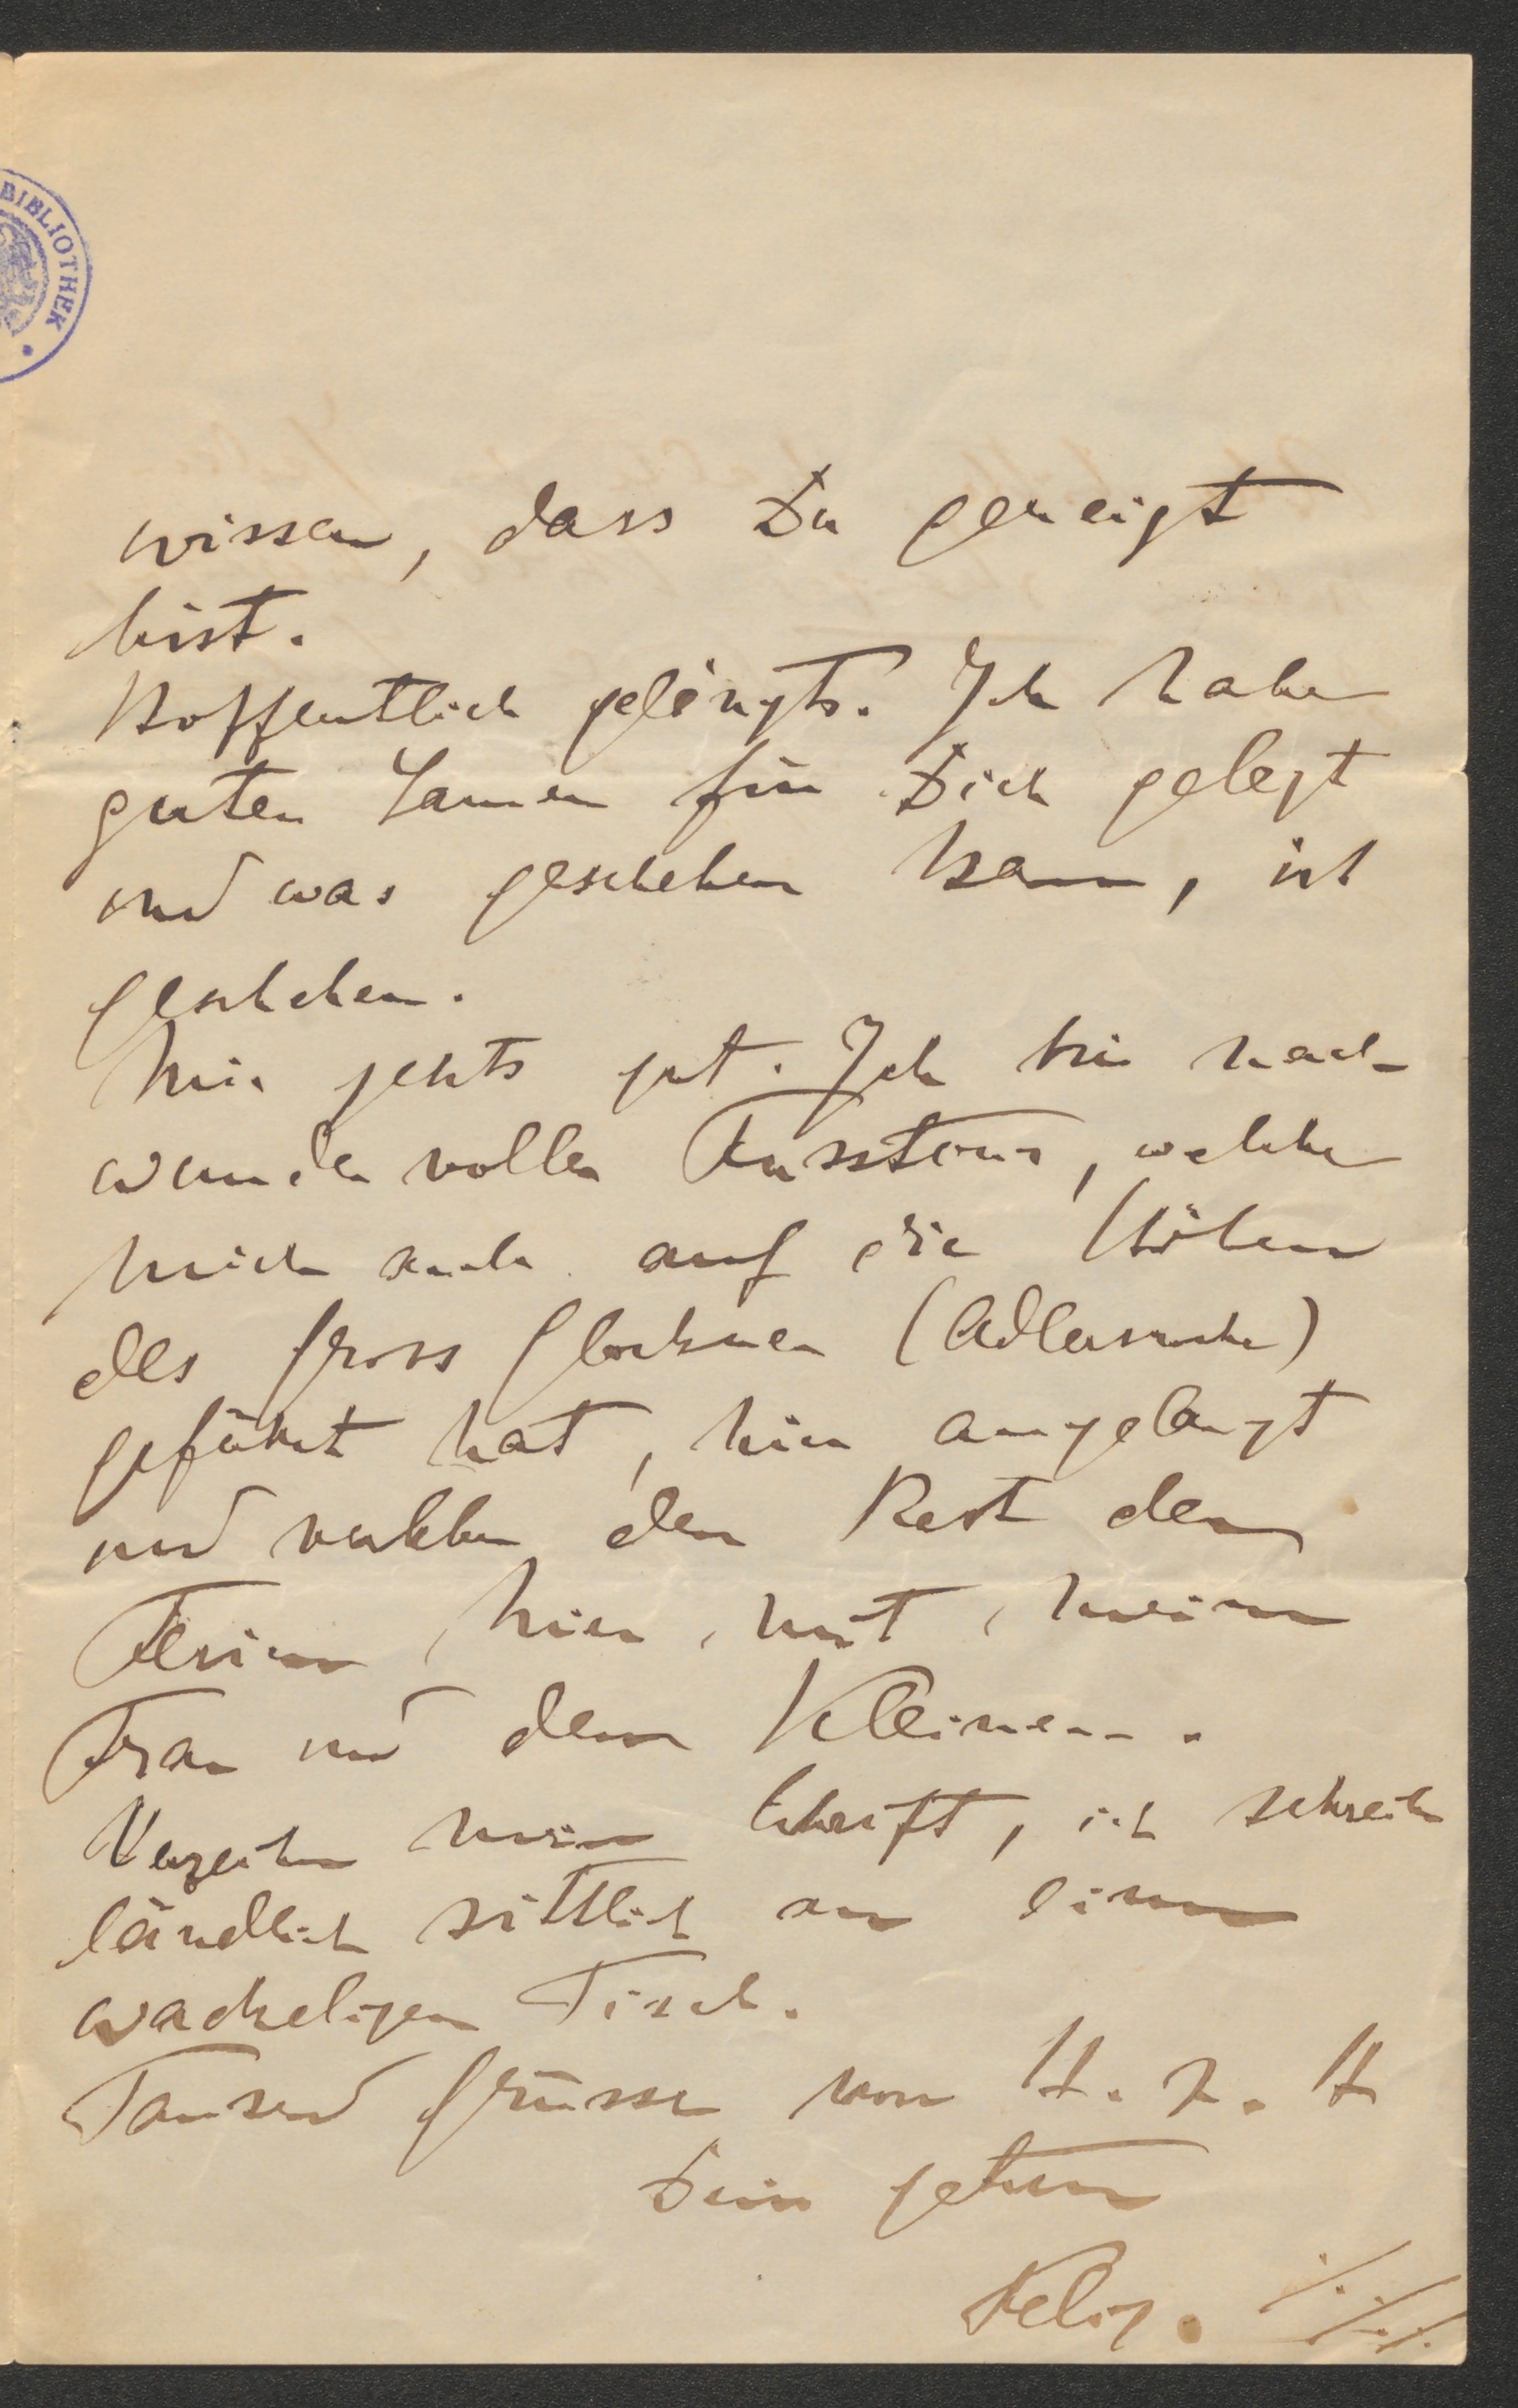 BIBLIOTHEK
wissen, dass Du geneigt
bist.
Hoffentlich gelingts. Ich habe
guten Samen für Dich gelegt
und was geschehen kann, ist
geschehen.
Mir gehts gut. Ich bin nach
wundervoller Fusstour, welche
mich auch auf die Höhen
des Gross Glockner (Adlersruhe)
geführt hat, hier angelangt
und verlebe den Rest der
Ferien hier mit meiner
Frau und dem Kleinen.
Verzeihe meine Schrift, ich schreibe
ländlich sittlich an einem
wackeligen Tisch.
Tausend Grüsse von H. z. H
Dein getreuer
Felix. ./././.